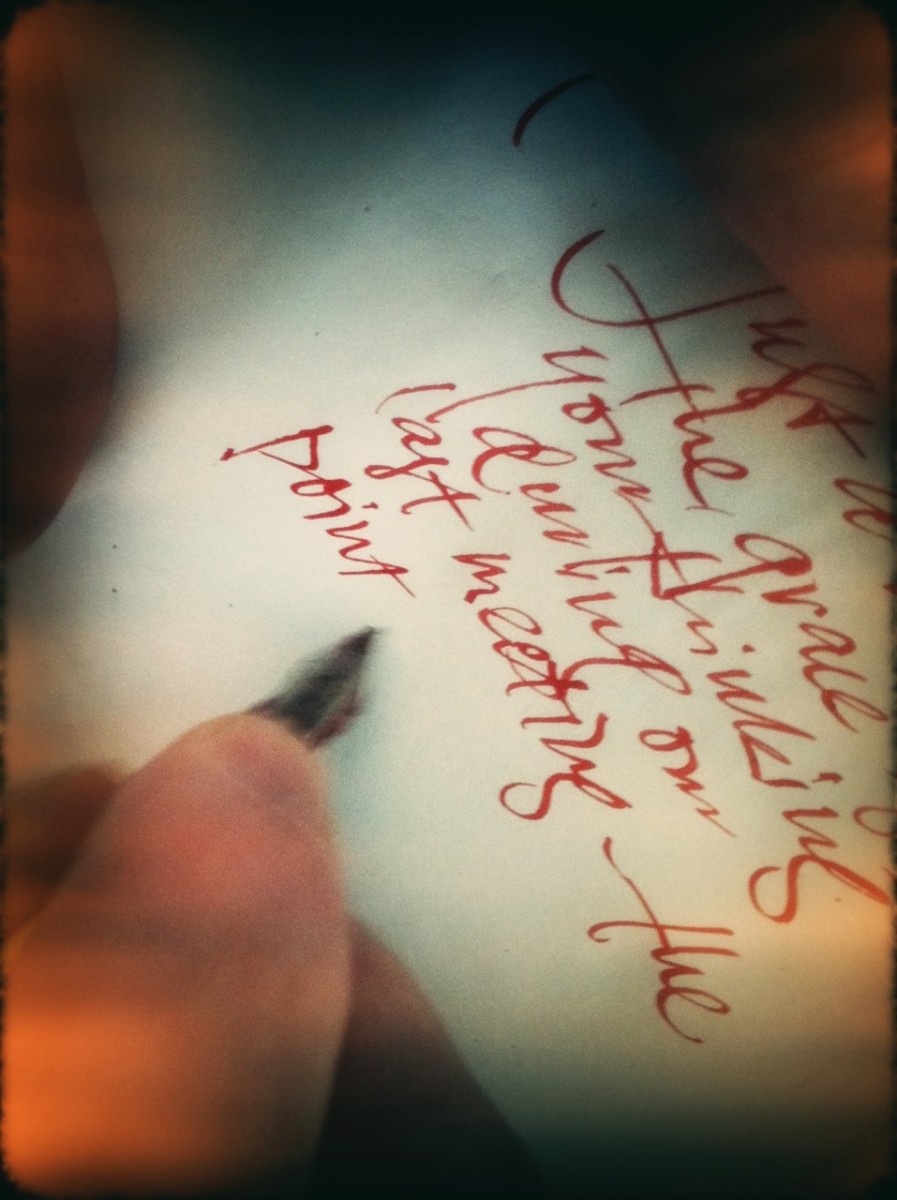 Just a
the grace
your thinking
during our
last meeting – the
point